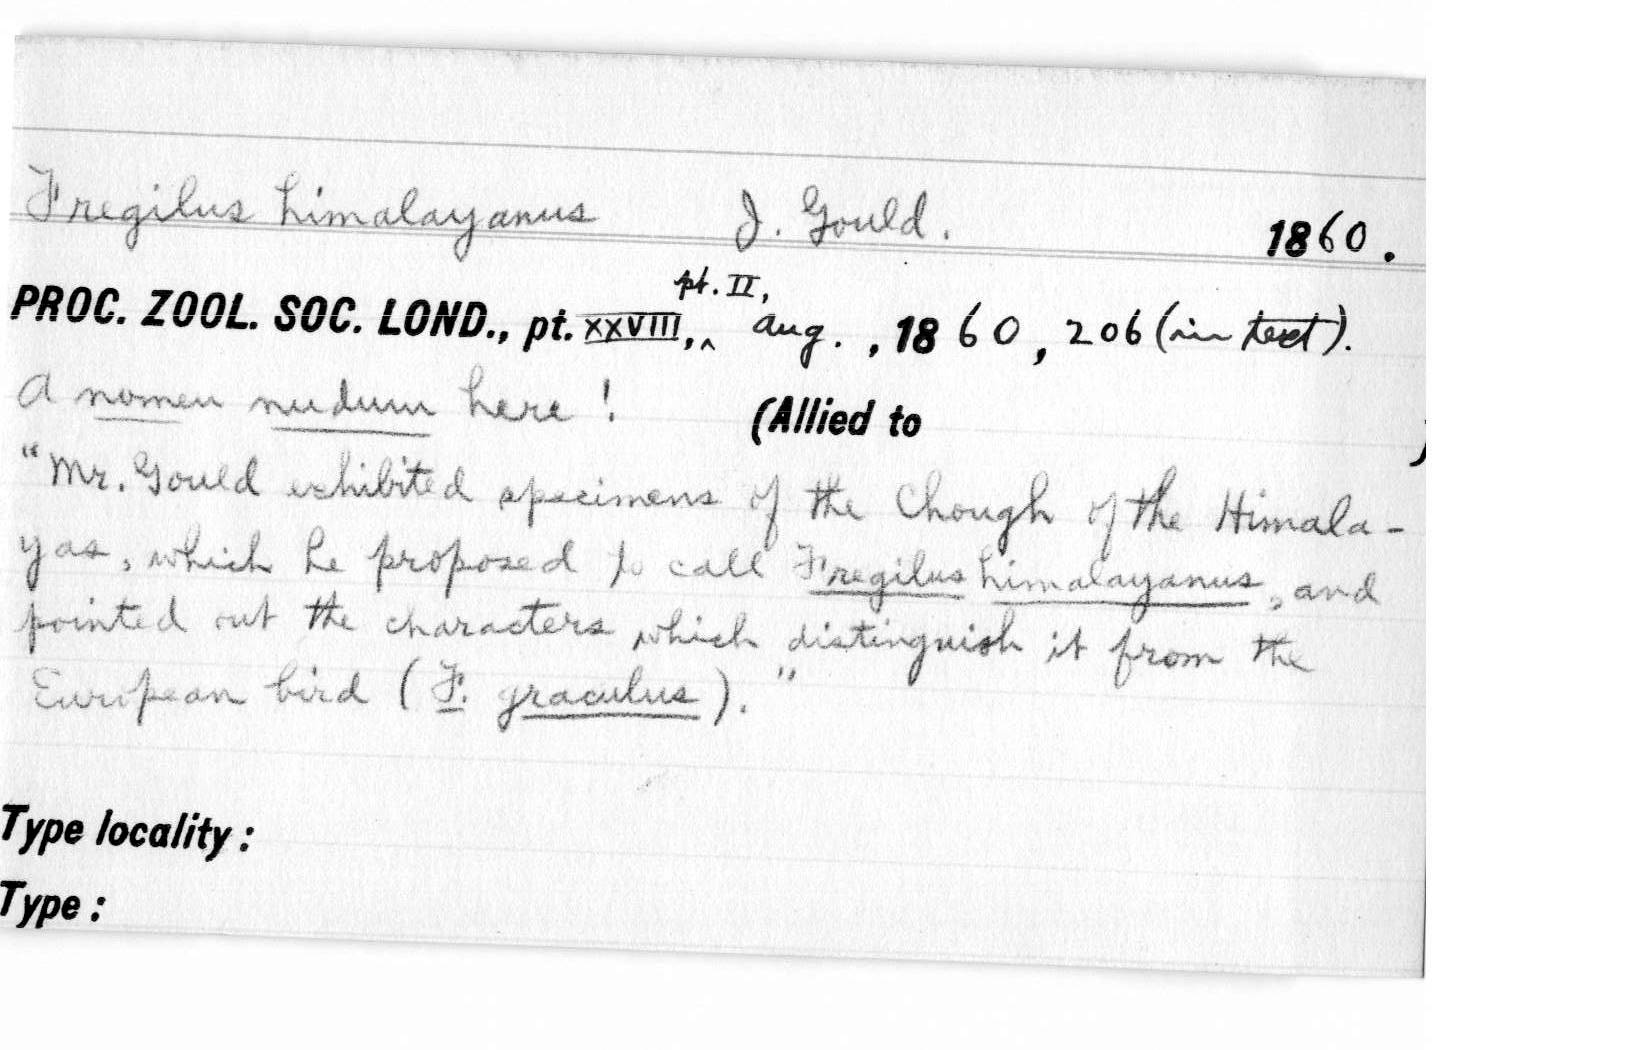 Fregilus himalayanus J. Gould. 1860.
pt. II,
PROC. ZOOL. SOC. LOND., pt. XXVIII,‸ Aug. , 1860, 206 (in text).
A nomen nudum here ! (Allied to )
"Mr. Gould exhibited specimens of the Chough of the Himala-
yas, which he proposed to call Fregilus himalayanus, and
pointed out the characters which distinguish it from the
European bird (F. graculus)."
Type locality :
Type :